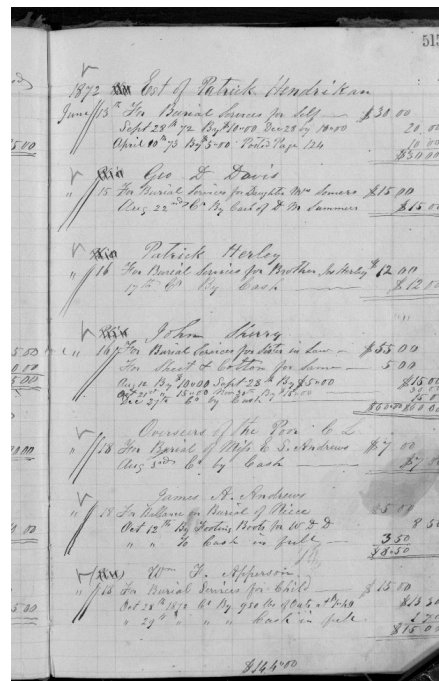 513
1872 Est of Patrick Hendrikan
June 13th For Burial Services for Self — $30.00
Sept 28th 72 By $10.00 Dec 28 by 10.00 20.00
April 10th 73 By 5.00 Posted Page 124 10.00
$30.00
Geo D. Davis
" 15 For Burial Services for Daughter Mrs Somers $15.00
Aug 22nd Cr By Cash of D. M. $15.00
Patrick Herley
" 16 For Burial Services for Brother Jas Herley $12.00
17th Cr By Cash — $12.00
John Sherry
" 16 For Burial Services for Sister in Law — $55.00
For Sheet & Cotton for Same — 5.00
Aug 12 By $10.00 Sept 28th By $5.00 $15.00
15.00 30.00
Dec 27th Cr by Cash By $15.00 15.00
$60.00 $60.00
Overseers of the Poor C. L.
" 18 For Burial of Miss E. S. Andrews $7.00
Aug 3rd Cr by Cash — $7.00
James A. Andrews
" 18 For Ballance on Burial of Niece
Oct 12th By Footing Boots for W D D 8.50
" " To Cash in full 3.50
$8.50
Wm F. Apperson
" 18 For Burial Services for Child $15.00
Oct 28th Cr By 980 lbs of Oats $13.30
" 29th " " " Cash in full 1.70
$15.00
$144.00